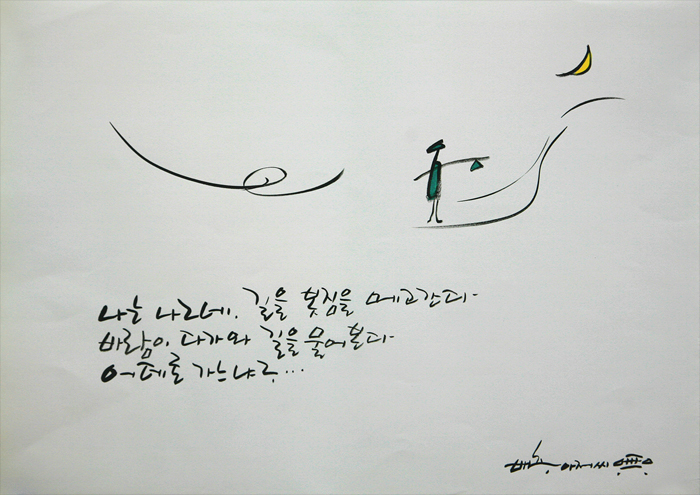 나는 나그네. 길을 봇짐을 메고간다.
바람이 다가와 길을 물어본다
어데로 가느냐고...
아저씨